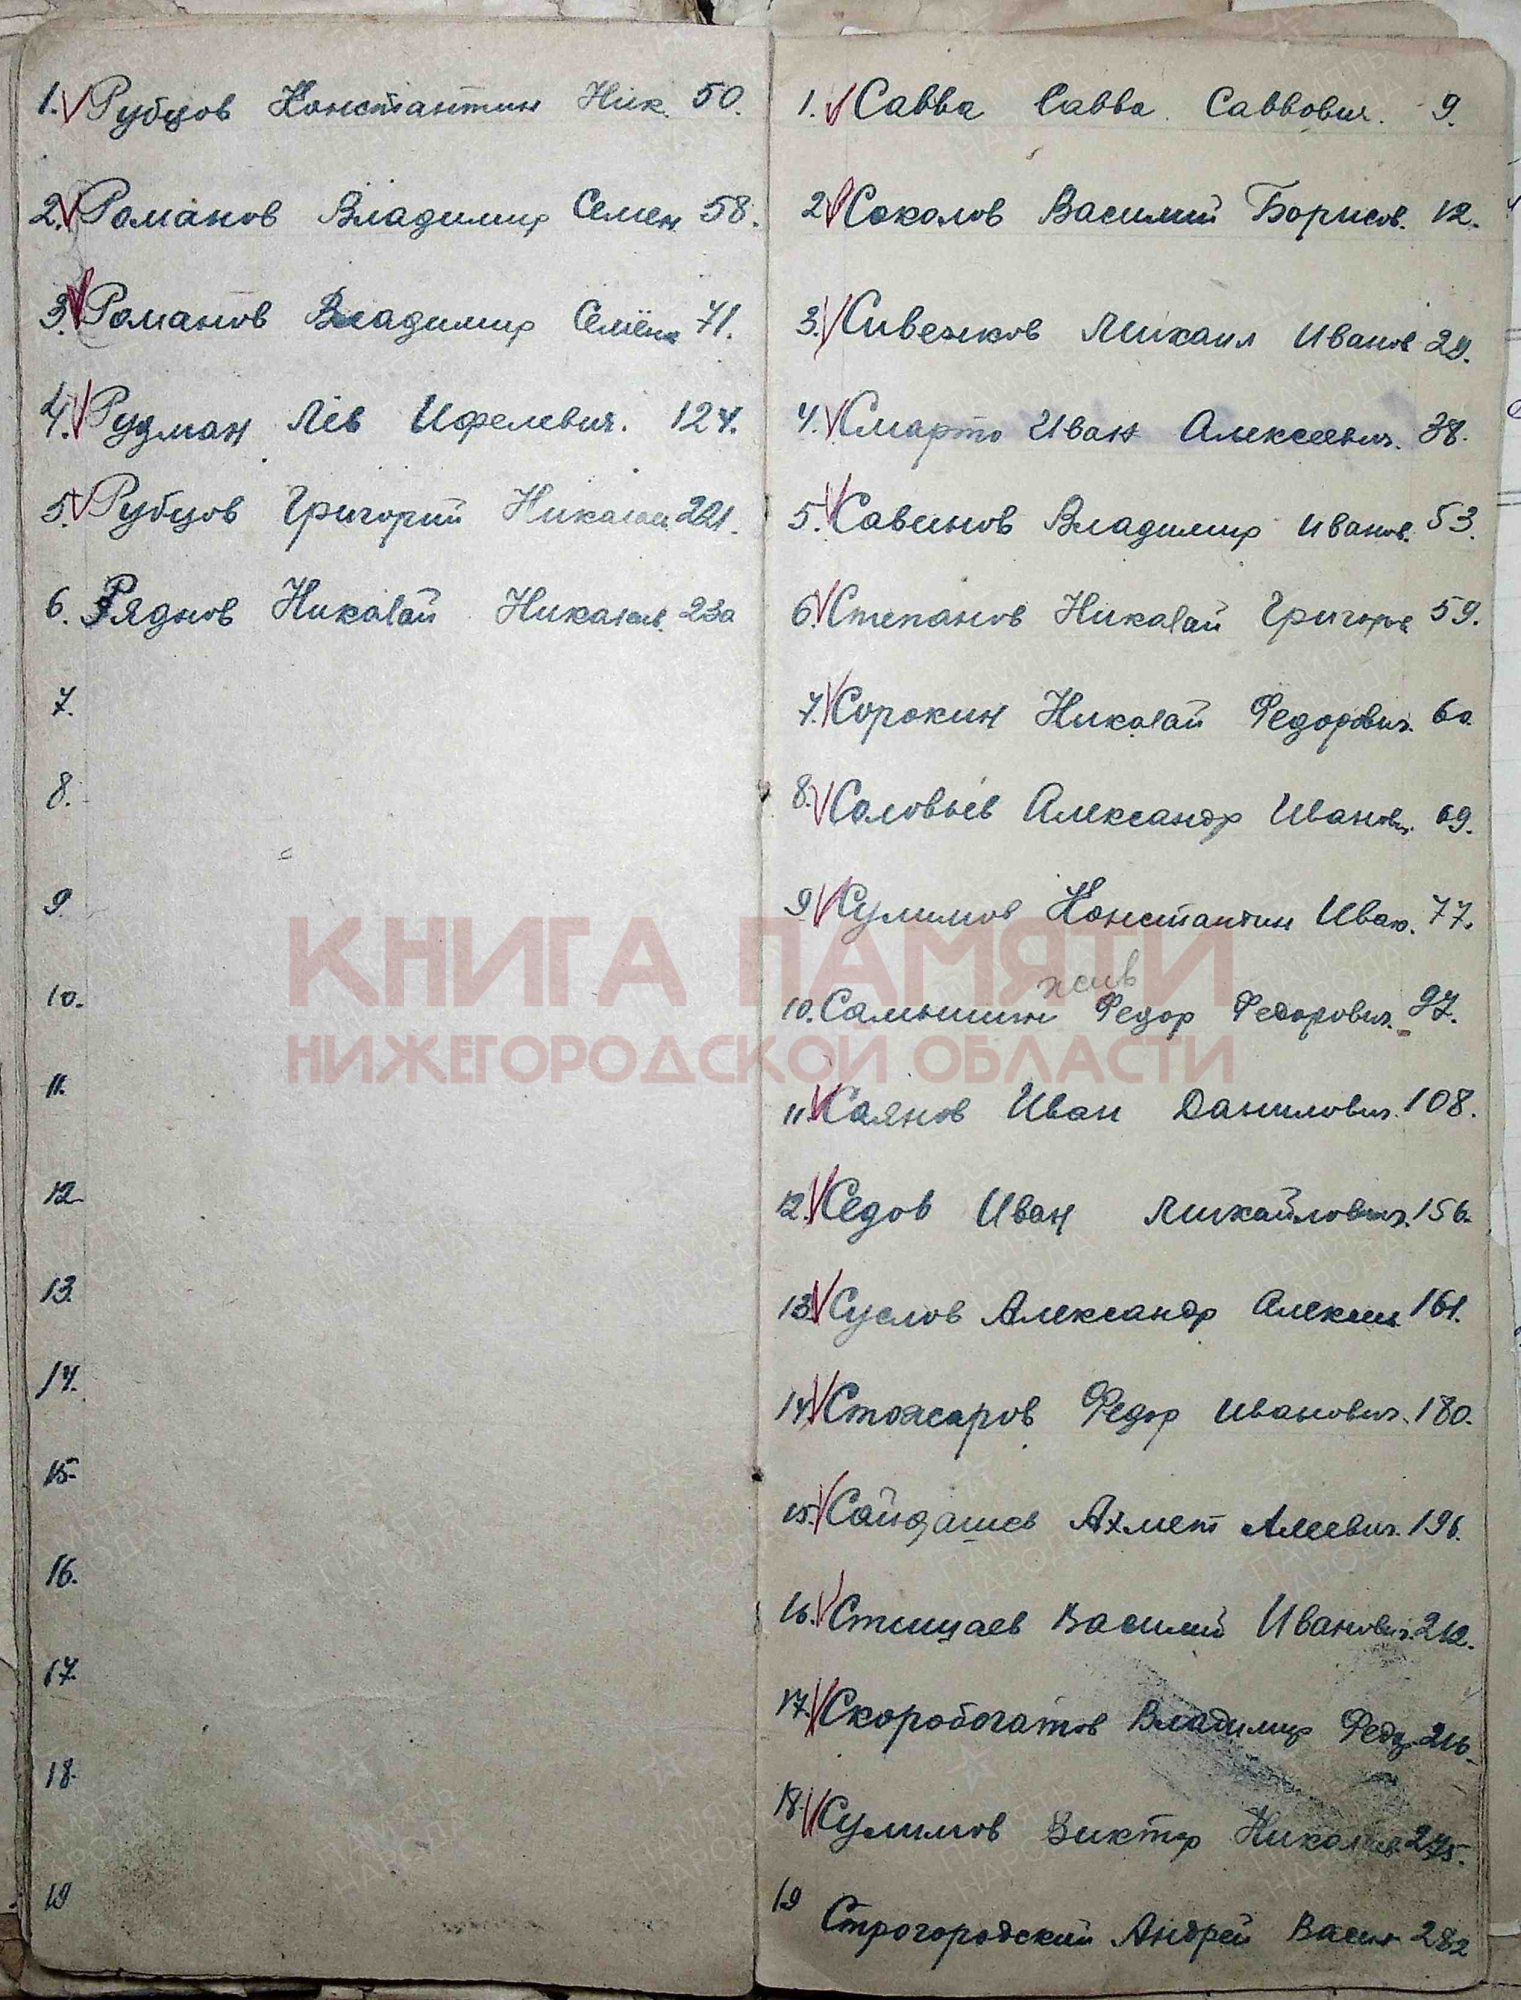 1. Рубцов Константин Ник. 50.
2. Романов Владимир Семен. 58.
3. Романов Владимир Семён. 71.
4. Рудман Лев Ифелевич. 124.
5. Рубцов Григорий Николаев 221.
6. Ряднов Николай Николаев. 230
7.
8.
9.
10.
11.
12.
13.
14.
15.
16.
17.
18.
19
1. Савва Савва Саввович. 9.
2. Соколов Василий Борисов. 12.
3. Сивенков Михаил Иванов
4. Смарто Иван Алексеевич. 38.
5. Савинов Владимир Иванов. 53.
6. Степанов Николай Григоров 59.
7. Сорокин Николай Федорович. 60
8. Соловьев Александр Иванович. 69.
9. Сулимов Константин Иван. 77.
жив
10. Федор Федорович. 97.
11. Саянов Иван Данилович. 108.
12. Седов Иван Михайлович. 156.
13. Суслов Александр Алексеев. 161.
14. Стожаров Федор Иванович. 180.
15. Сайдашев Ахмет Алеевич. 196.
16. Стищаев Василий Иванович. 212.
17. Скоробогатов Владимир Федор. 216.
18. Сулимов Виктор Николаев. 275.
19 Строгородский Андрей Васил 282
КНИГА ПАМЯТИ
НИЖЕГОРОДСКОЙ ОБЛАСТИ